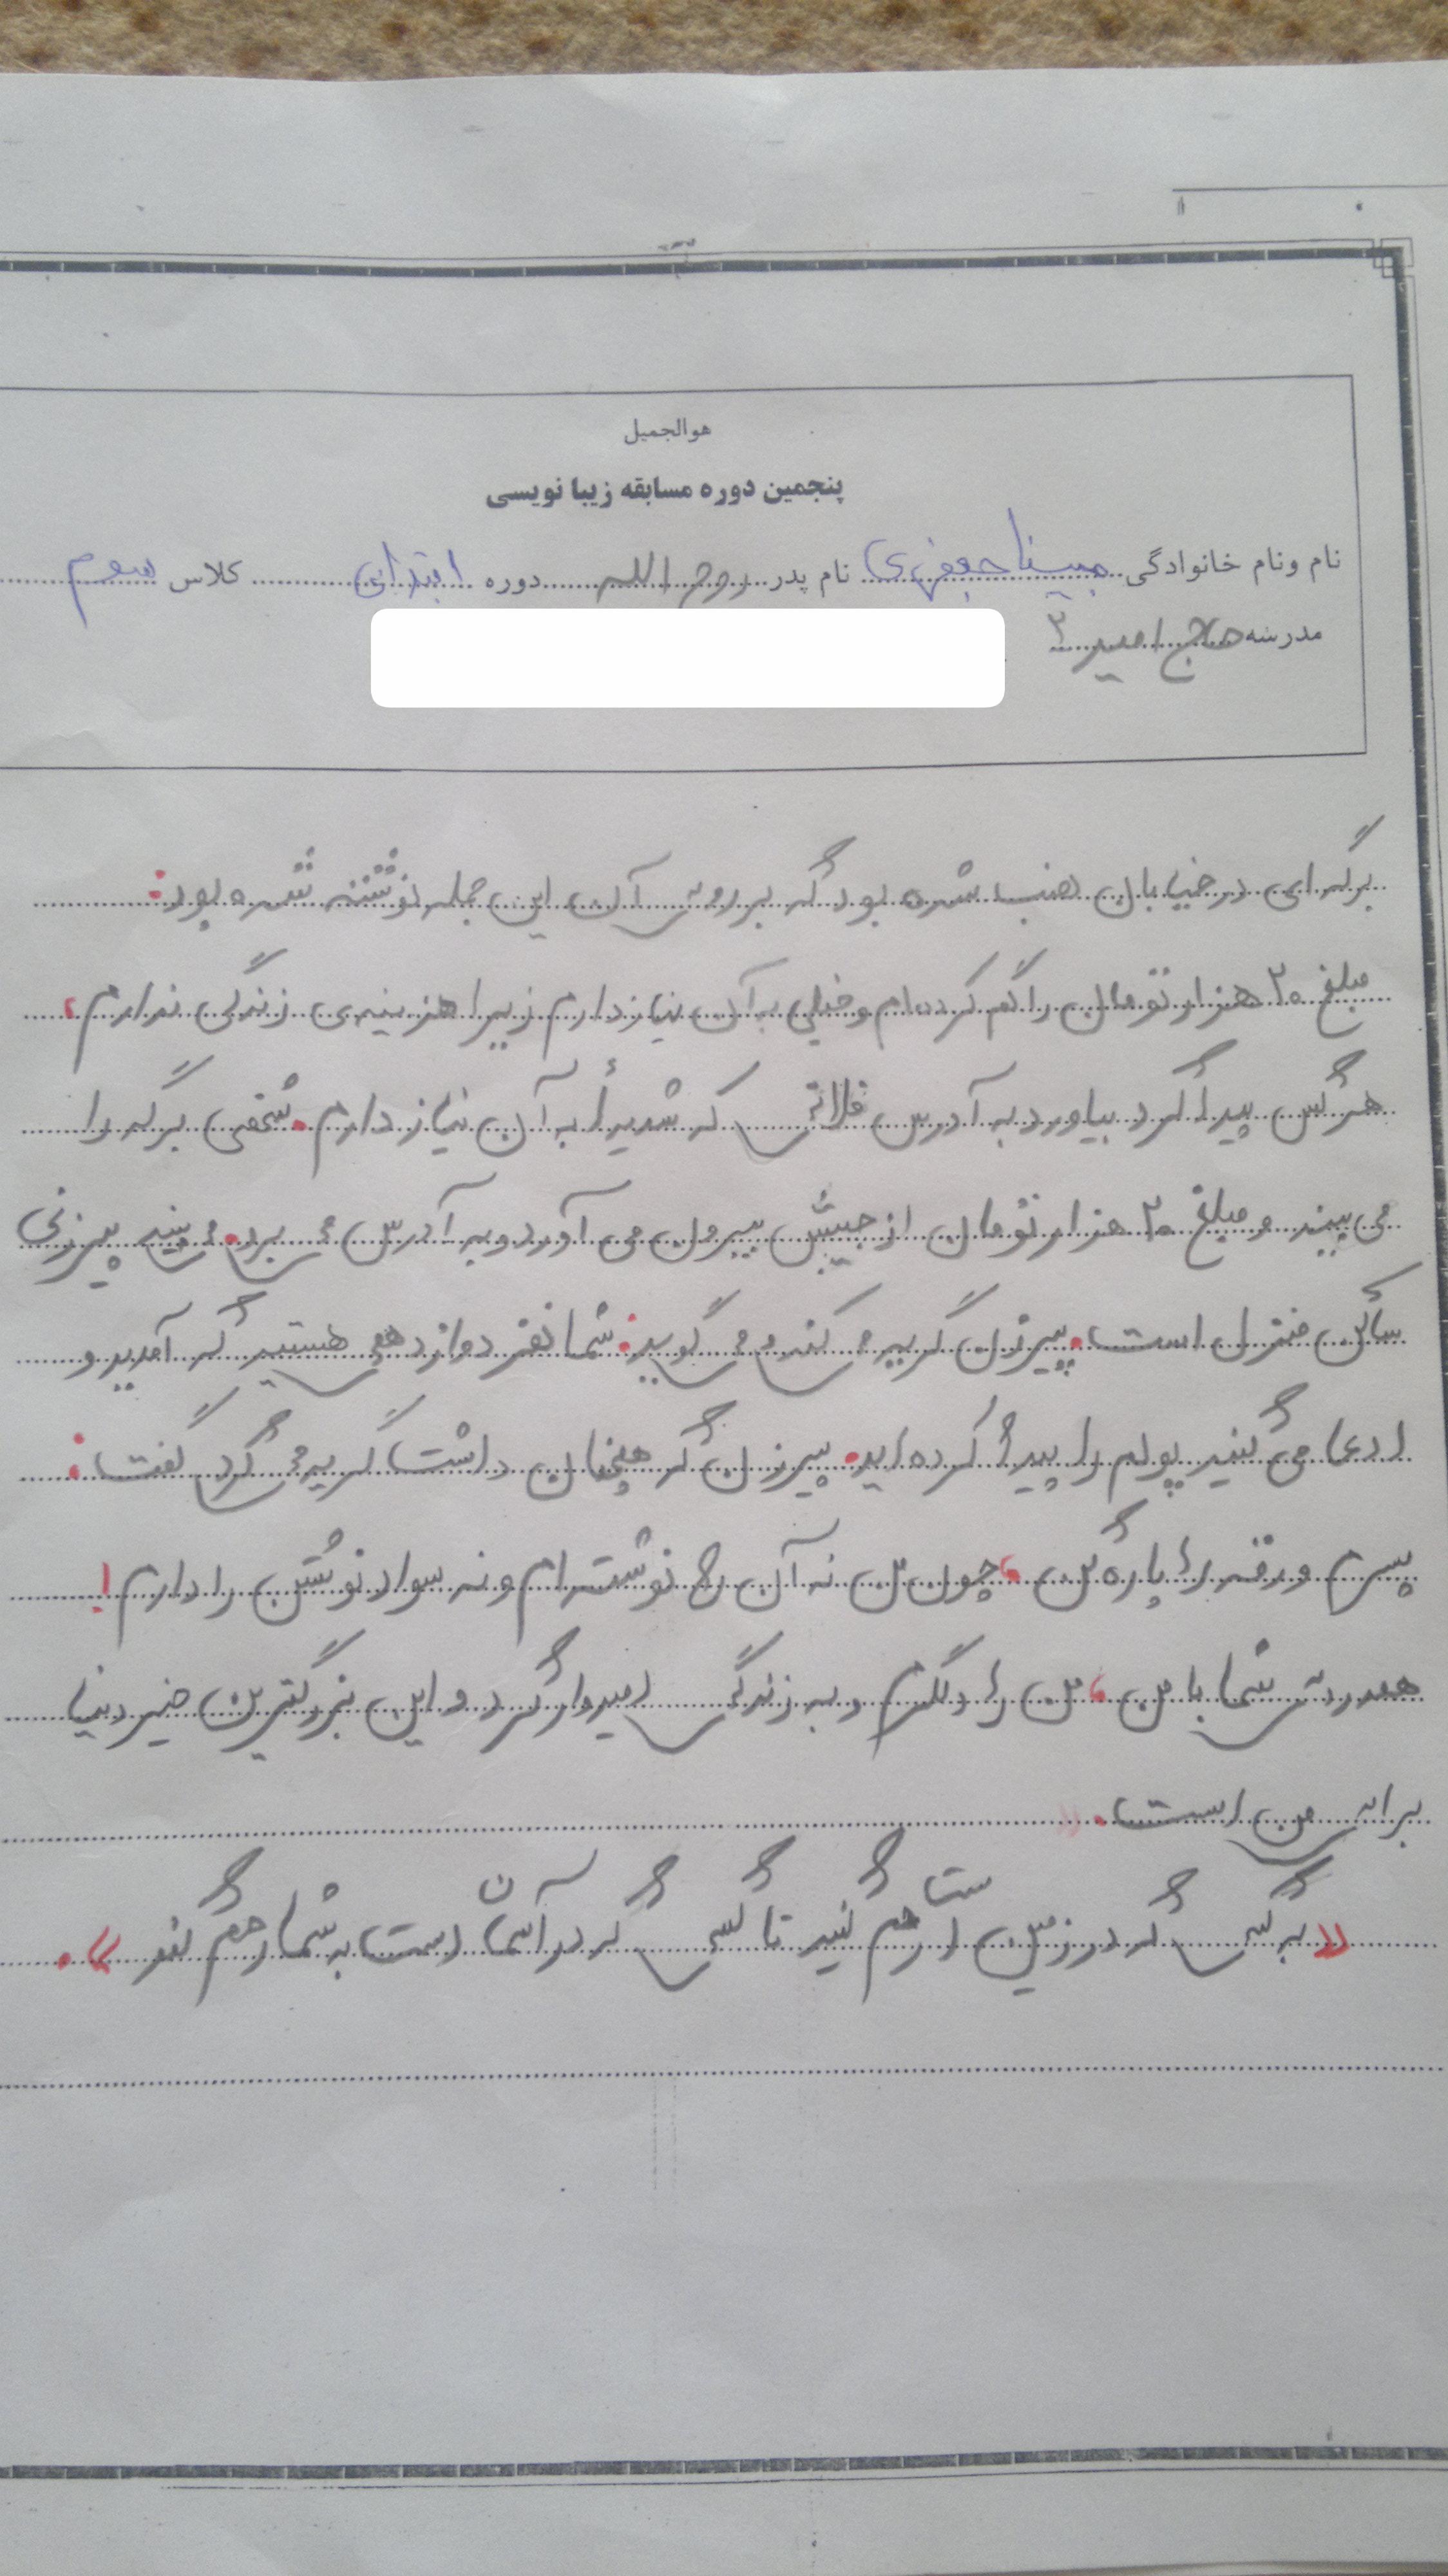 هوالجمیل
پنجمین دوره مسابقه زیبا نویسی
نام ونام خانوادگی مبینا جعفری نام پدر روح الله دوره ابتدائی کلاس سوم
مدرسه حاج امیر ۲
برگه ای در خیابان نصب شده بود که بر روی آن این جمله نوشته شده بود:
مبلغ ۲۰ هزار تومان را گم کرده ام و خیلی به آن نیاز دارم زیرا هزینه ی زندگی ندارم،
هرکس پیدا کرد بیاورد به آدرس فلانی که شدیدأ به آن نیاز دارم. شخصی برگه را
می بیند و مبلغ ۲۰ هزار تومان از جیبش بیرون می آورد و به آدرس می برد. می بیند پیرزنی
ساکن منزل است. پیرزن گریه می کند و می گوید: شما نفر دوازدهمی هستید که آمدید و
ادعا می کنید پولم را پیدا کرده اید. پیرزن که همچنان داشت گریه می کرد گفت:
پسرم ورقه را پاره کن، چون من نه آن را نوشته ام و نه سواد نوشتن را دارم!
همدردی شما با من، من را دلگرم و به زندگی امیدوار کرد و این بزرگترین خیر دنیا
برای من است.
«به کسی که در زمین است رحم کنید تا کسی که در آسمان است به شما رحم کند».